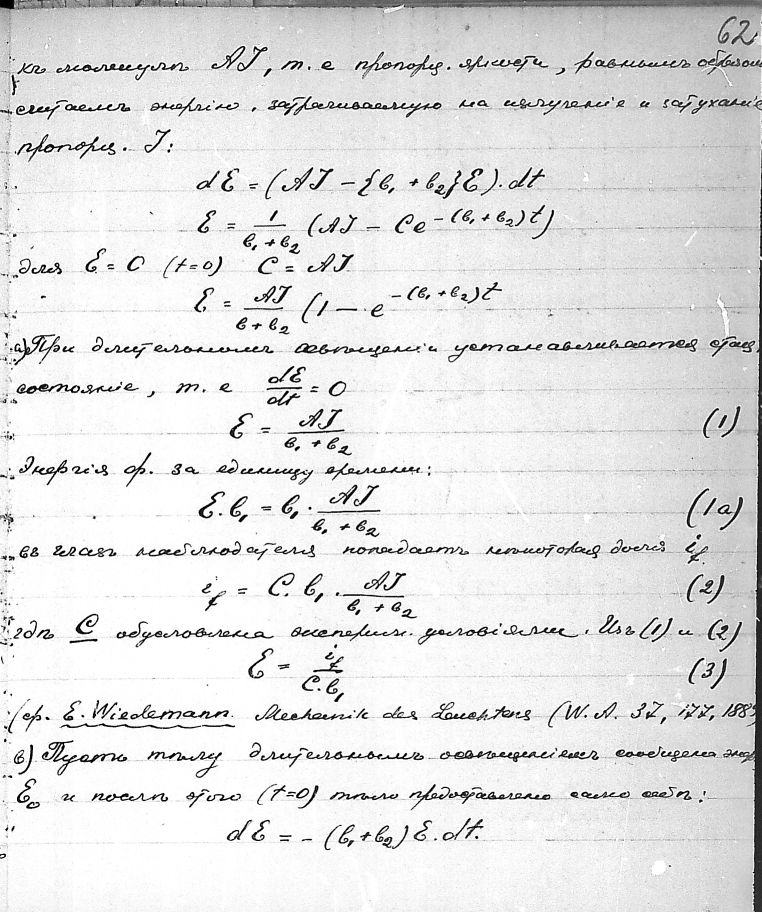 62
къ молекулѣ AJ, т. е пропорц. яркости, равнымъ образом
считаемъ энергію, затрачиваемую на излученіе и затуханіе
пропорц. J:
dE = (AJ - {b₁ + b₂}E). dt
E = 1/(b₁ + b₂) (AJ - Ce^-(b₁ + b₂)t)
для E = 0 (t=0) C = AJ
E = AJ/(b + b₂) (1 - e^-(b₁ + b₂)t
а) При длительномъ освѣщеніи устанавливается стац.
состояніе, т. е dE/dt = 0
E = AJ/(b₁ + b₂) (1)
Энергія ф. за единицу времени:
E. b₁ = b₁ · AJ/(b₁ + b₂) (1a)
въ глазъ наблюдателя попадаетъ нѣкоторая доля i_f
i_f = C. b₁ . AJ/(b₁ + b₂) (2)
гдѣ C обусловлена эксперим. условіями. Изъ (1) и (2)
E = i_f/(C. b₁) (3)
(ср. E. Wiedemann. Mechanik des Leuchtens (W. A. 37, 177, 188
в) Пусть тѣлу длительнымъ освѣщеніемъ сообщена энер
E₀ и послѣ этого (t=0) тѣло предоставлено само себѣ:
dE = - (b₁ + b₂) E. dt.